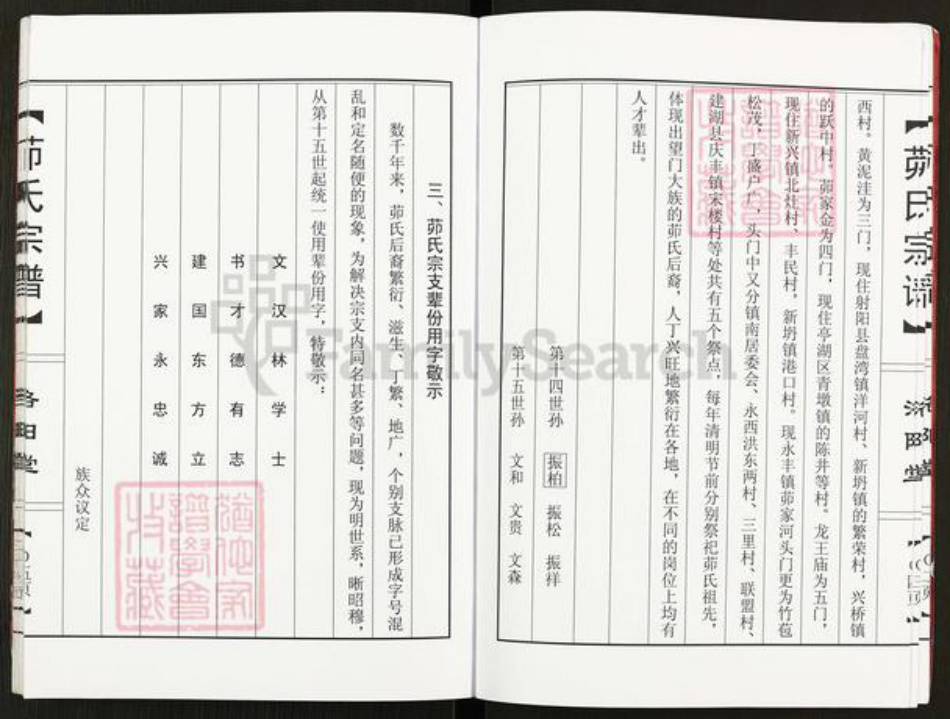 西村。黄泥洼为三门，现住射阳县盘湾镇洋河村、新坍镇的繁荣村，兴桥镇
的跃中村。茆家金为四门，现住亭湖区青墩镇的陈井等村。龙王庙为五门，
现住新兴镇北灶村、丰民村，新坍镇港口村。现永丰镇茆家河头门更为竹苞
松茂，丁盛户广，头门中又分镇南居委会、永西洪东两村、三里村、联盟村、
建湖县庆丰镇宋楼村等处共有五个祭点，每年清明节前分别祭祀茆氏祖先，
体现出望门大族的茆氏后裔，人丁兴旺地繁衍在各地，在不同的岗位上均有
人才辈出。
第十四世孙 振柏 振松 振祥
第十五世孙 文和 文贵 文森
三、茆氏宗支辈份用字敬示
数千年来，茆氏后裔繁衍、滋生、丁繁、地广，个别支脉已形成字号混
乱和定名随便的现象，为解决宗支内同名甚多等问题，现为明世系，晰昭穆，
从第十五世起统一使用辈份用字，特敬示：
文汉林学士
书才德有志
建国东方立
兴家永忠诚
族众议定
【茆氏宗谱】
洛阳堂
【茆氏宗谱】
洛阳堂
FamilySearch